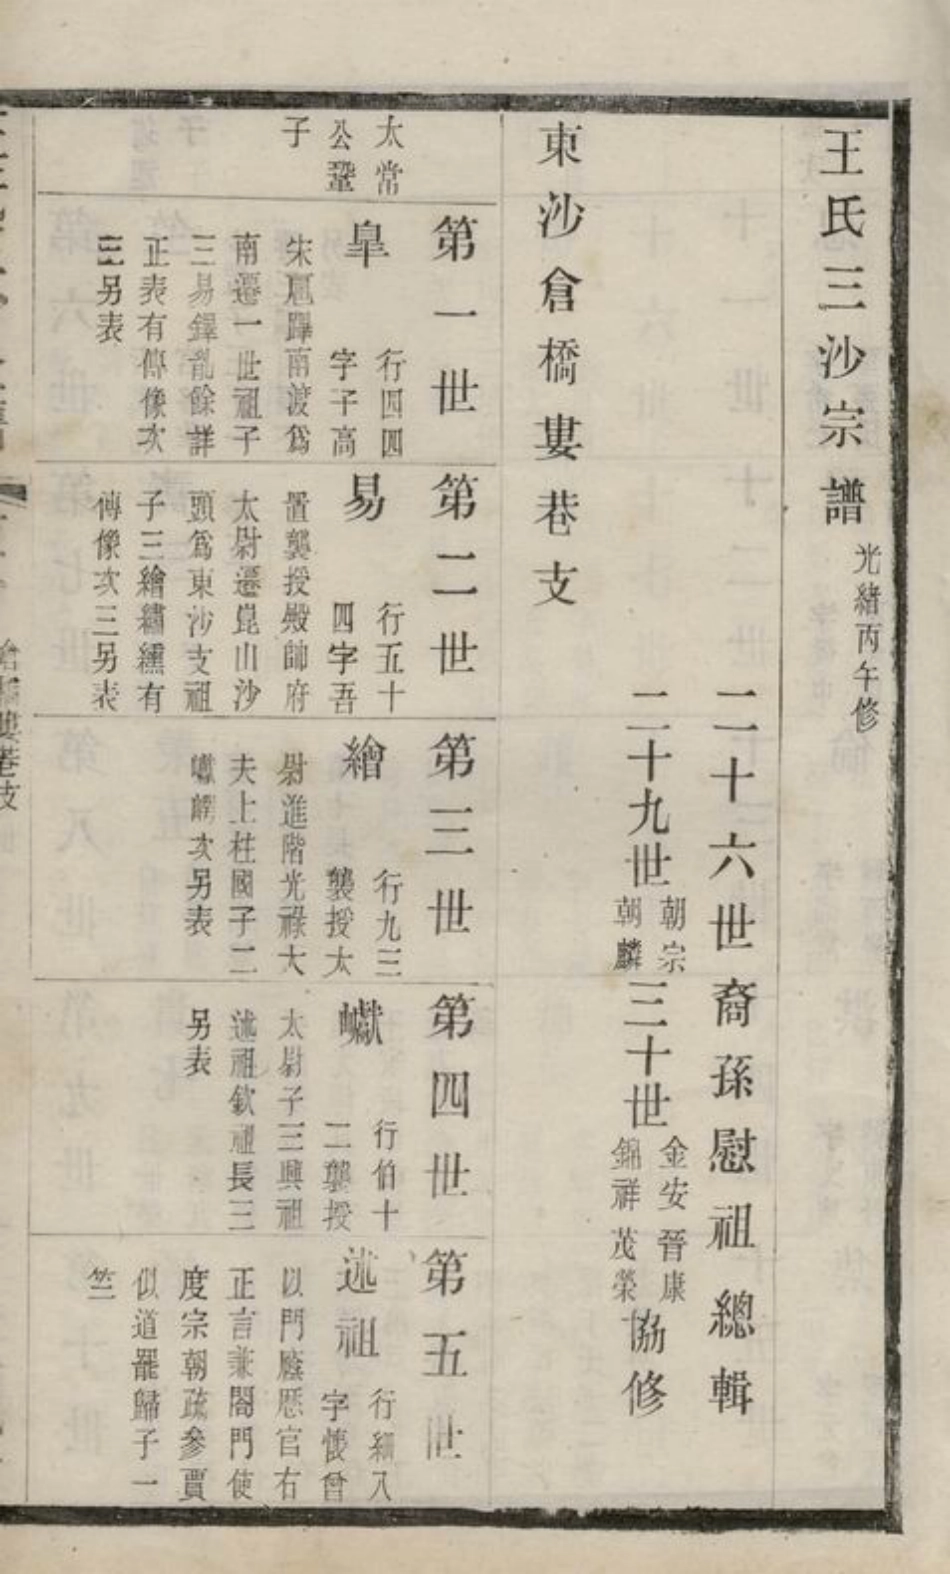 王氏三沙宗譜 光緒丙午修
二十六世裔孫慰祖總輯
二十九世 朝宗 朝麟 三十世 金安 晉康 錦祥 茂榮 協修
東沙倉橋婁巷支
太常
公鞏
子
第一世
皐 行四四
字子高
朱扈蹕南渡爲
南遷一世祖子
三易鐸亂餘詳
正表有傳像次
三另表
第二世
易 行五十
四字吾
置襲授殿帥府
太尉遷崑山沙
頭爲東沙支祖
子三繪繡纁有
傳像次三另表
第三世
繪 行九三
襲授太
尉進階光祿大
夫上柱國子二
巘 次另表
第四世
巘 行伯十
二襲授
太尉子三興祖
述祖欽祖長三
另表
第五世
述祖 行細八
字懷曾
以門廕歷官右
正言兼閤門使
度宗朝疏參賈
似道罷歸子一
竺
倉橋婁巷支